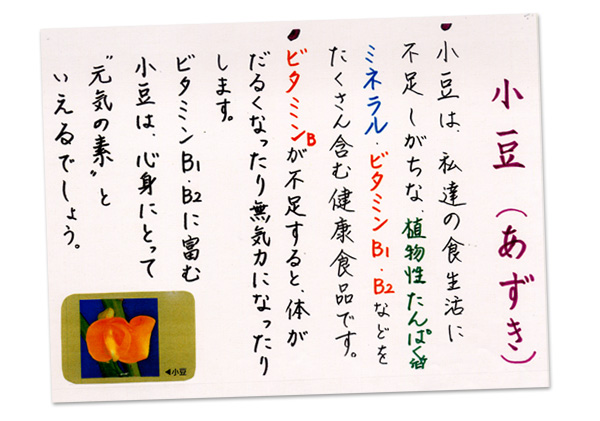 小豆(あずき)
小豆は、私達の食生活に
不足しがちな、植物性たんぱく質
ミネラル・ビタミンB1・B2などを
たくさん含む健康食品です。
ビタミンBが不足すると、体が
だるくなったり無気力になったり
します。
ビタミンB1・B2に富む
小豆は、心身にとって
“元気の素”と
いえるでしょう。
◀小豆